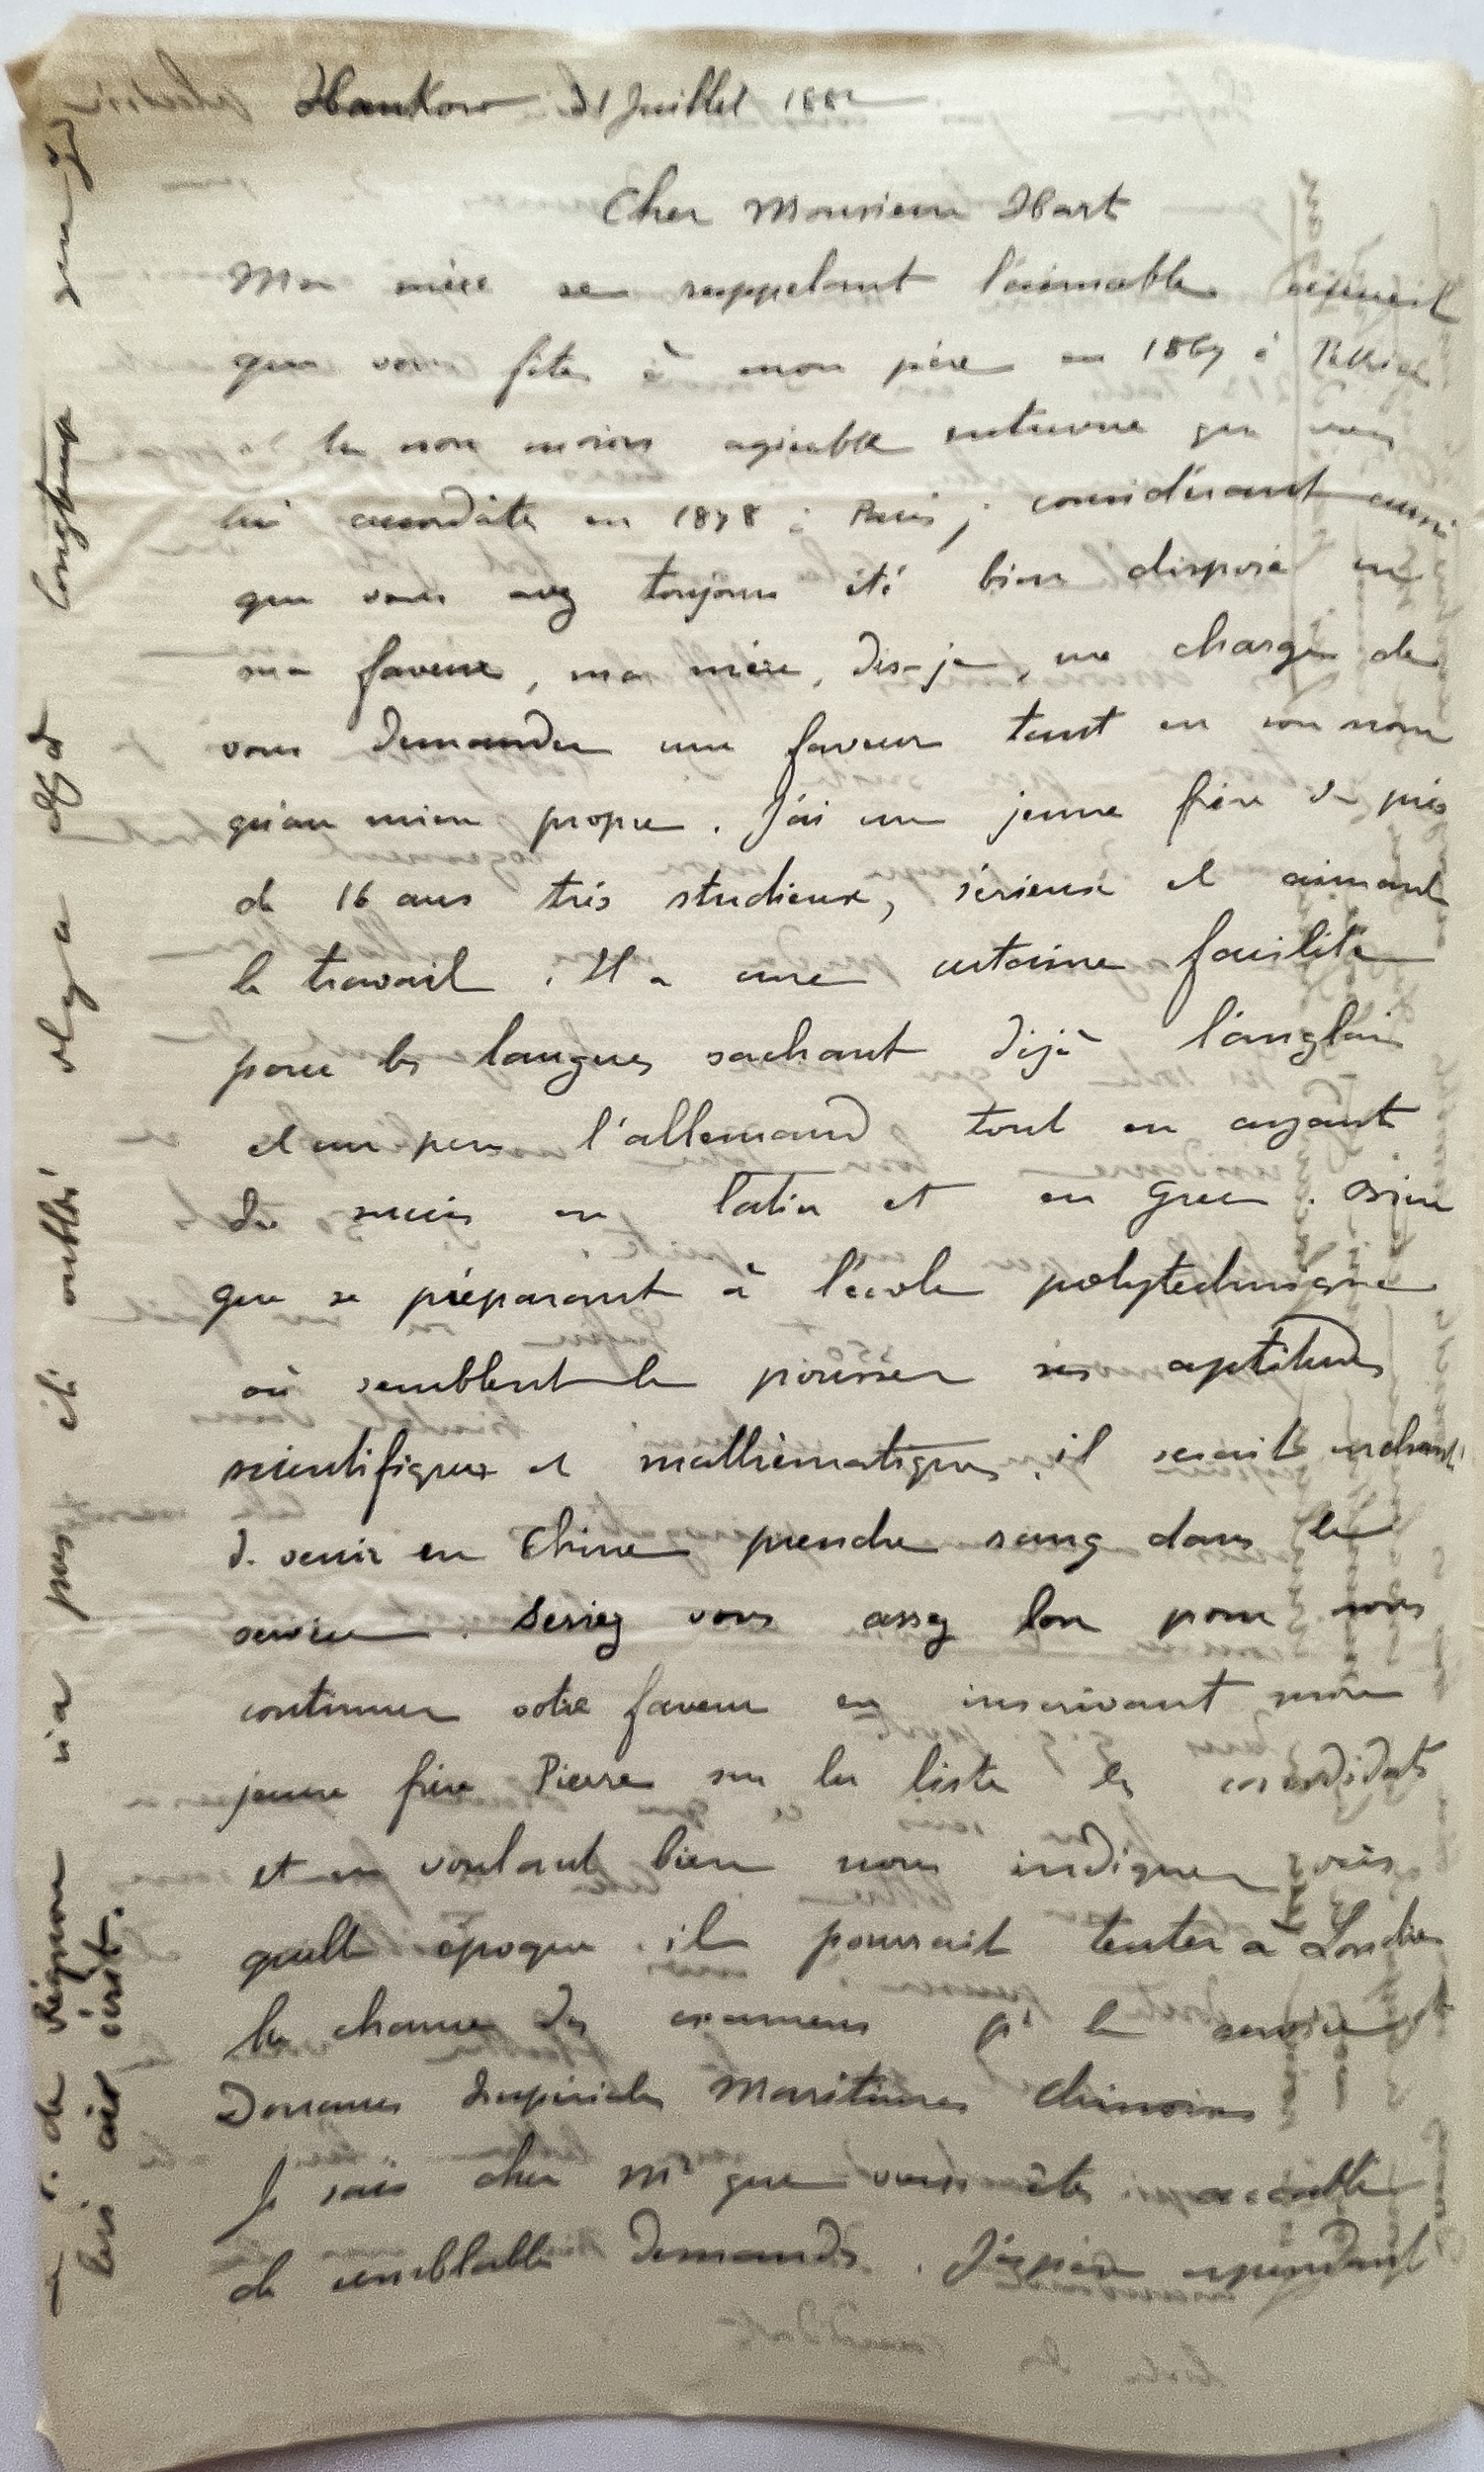 Hankow 31 Juillet 1882
Cher Monsieur Hart
Ma mère se rappelant l'aimable accueil
que vous fîtes à mon père en 1867 à Pékin
et la non moins agréable entrevue que vous
lui accordâtes en 1878 à Paris; considérant aussi
que vous avez toujours été bien disposé en
ma faveur, ma mère, dis-je, me charge de
vous demander une faveur tant en son nom
qu'au mien propre. J'ai un jeune frère de près
de 16 ans très studieux, sérieux et aimant
le travail. Il a une certaine facilité
pour les langues sachant déjà l'anglais
et un peu l'allemand tout en ayant
du succès en latin et en Grec. Bien
que se préparant à l'école polytechnique
où semblent le pousser ses aptitudes
scientifiques et mathématiques, il serait enchanté
de venir en Chine prendre rang dans le
service. Seriez vous assez bon pour nous
continuer votre faveur en inscrivant mon
jeune frère Pierre sur la liste des candidats
et en voulant bien nous indiquer vers
quelle époque il pourrait tenter à Londres
la chance des examens pr le service
Douanes Impériales Maritimes chinoises
Je sais cher Mr que vous êtes accablé
de semblables demandes. J'espère cependant
de Régnon n'a pas été oublié il y a déjà longtemps que j'
lui ai écrit.